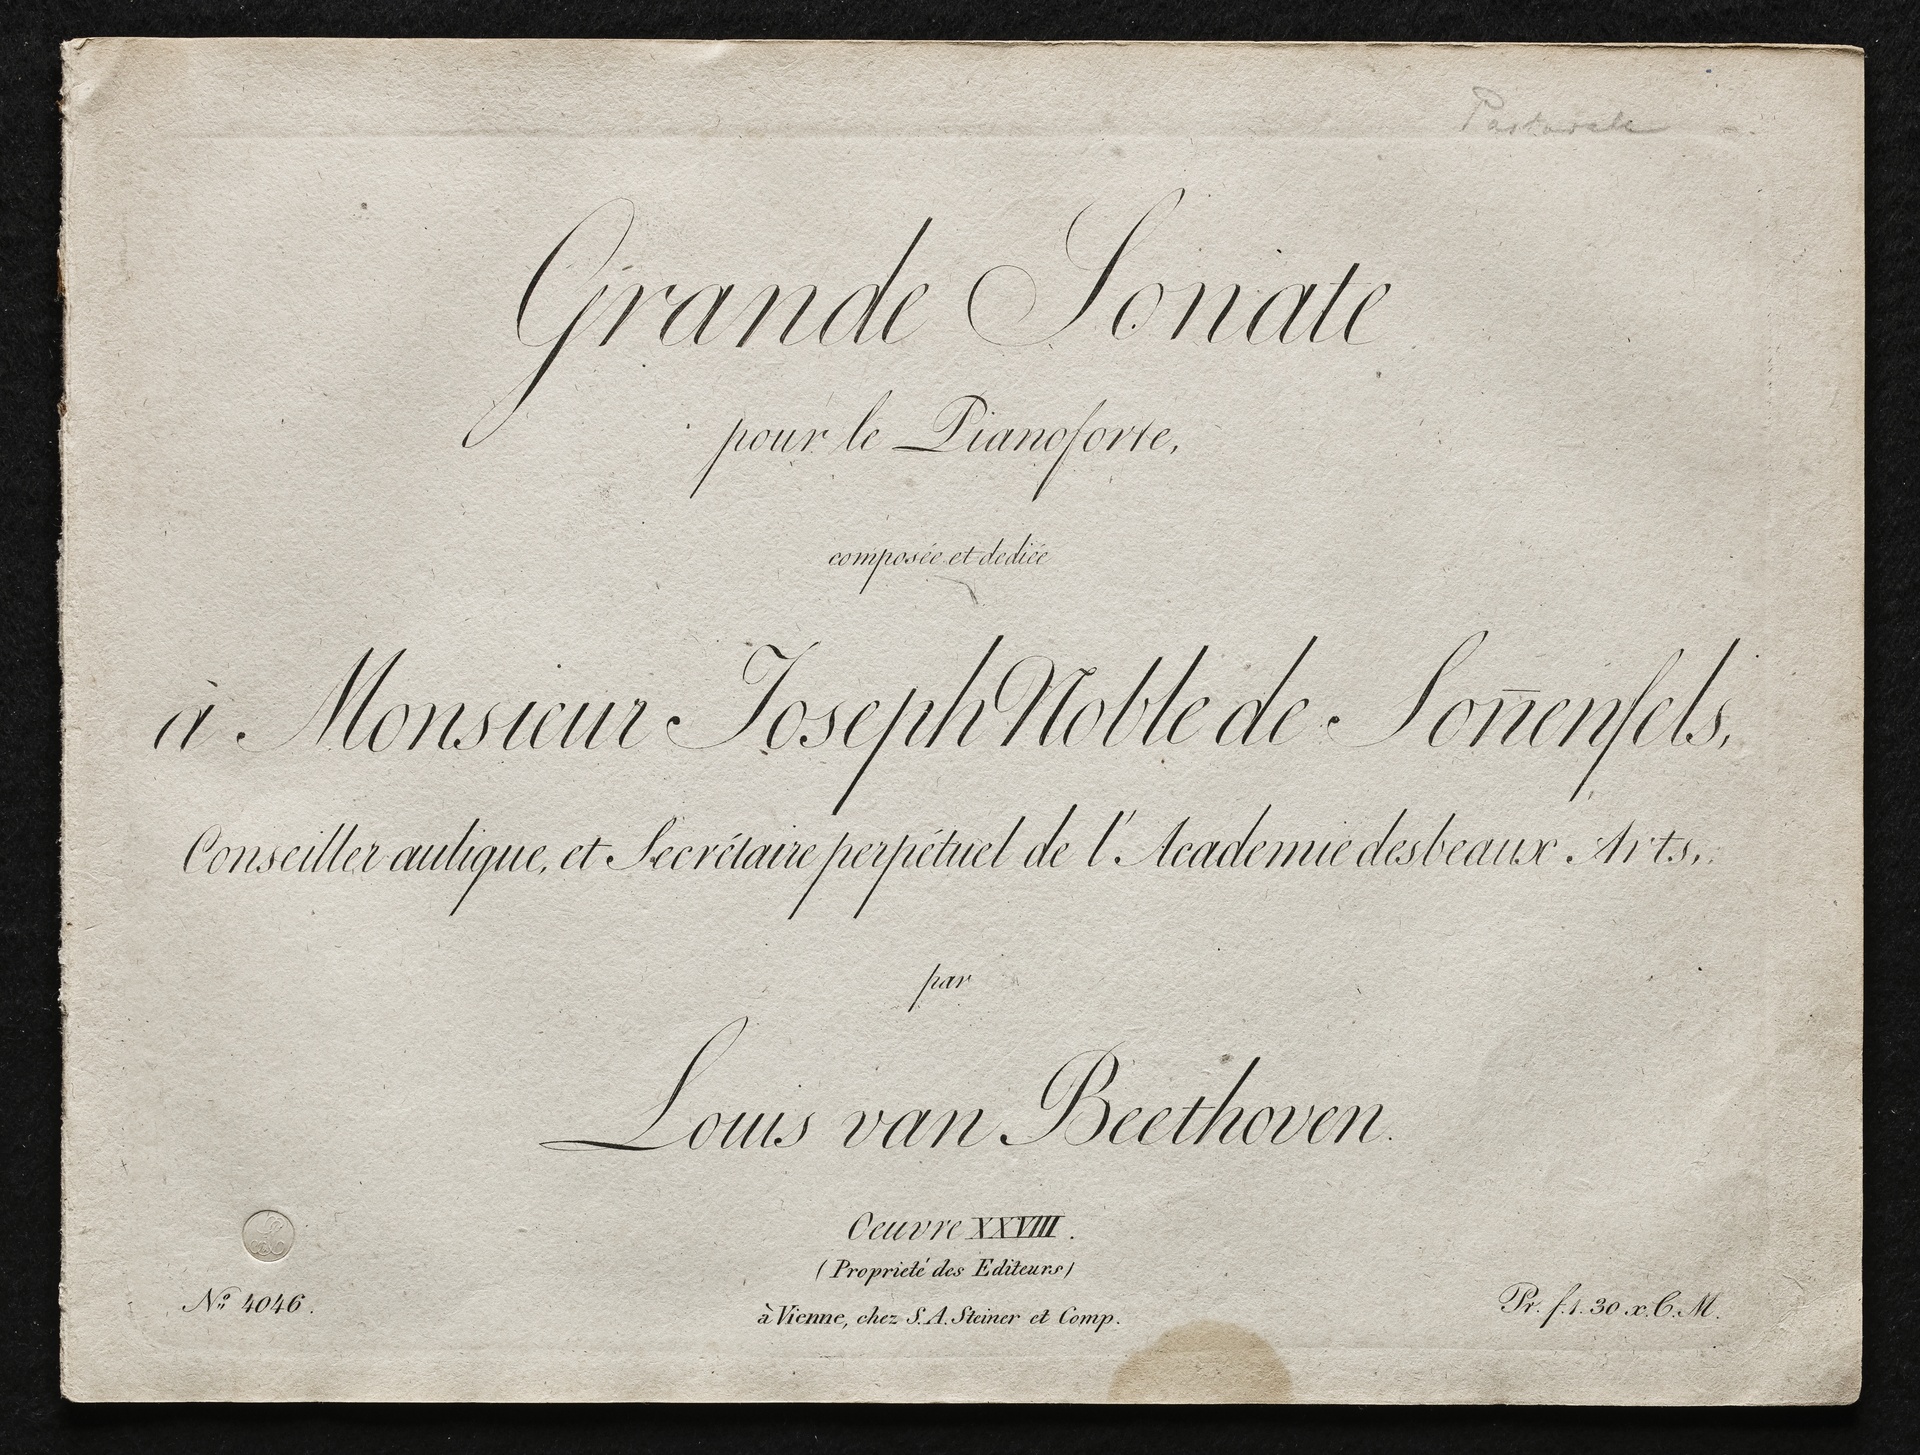 Pastorale
Grande Sonate
pour le Pianoforte,
composée et dediée
à Monsieur Joseph Noble de Son̄enfels,
Conseiller aulique, et Secrétaire perpétuel de l'Academie des beaux Arts,
par
Louis van Beethoven.
Oeuvre XXVIII.
(Proprieté des Editeurs)
No. 4046.
à Vienne, chez S. A. Steiner et Comp.
Pr. f. 1. 30 x. C. M.